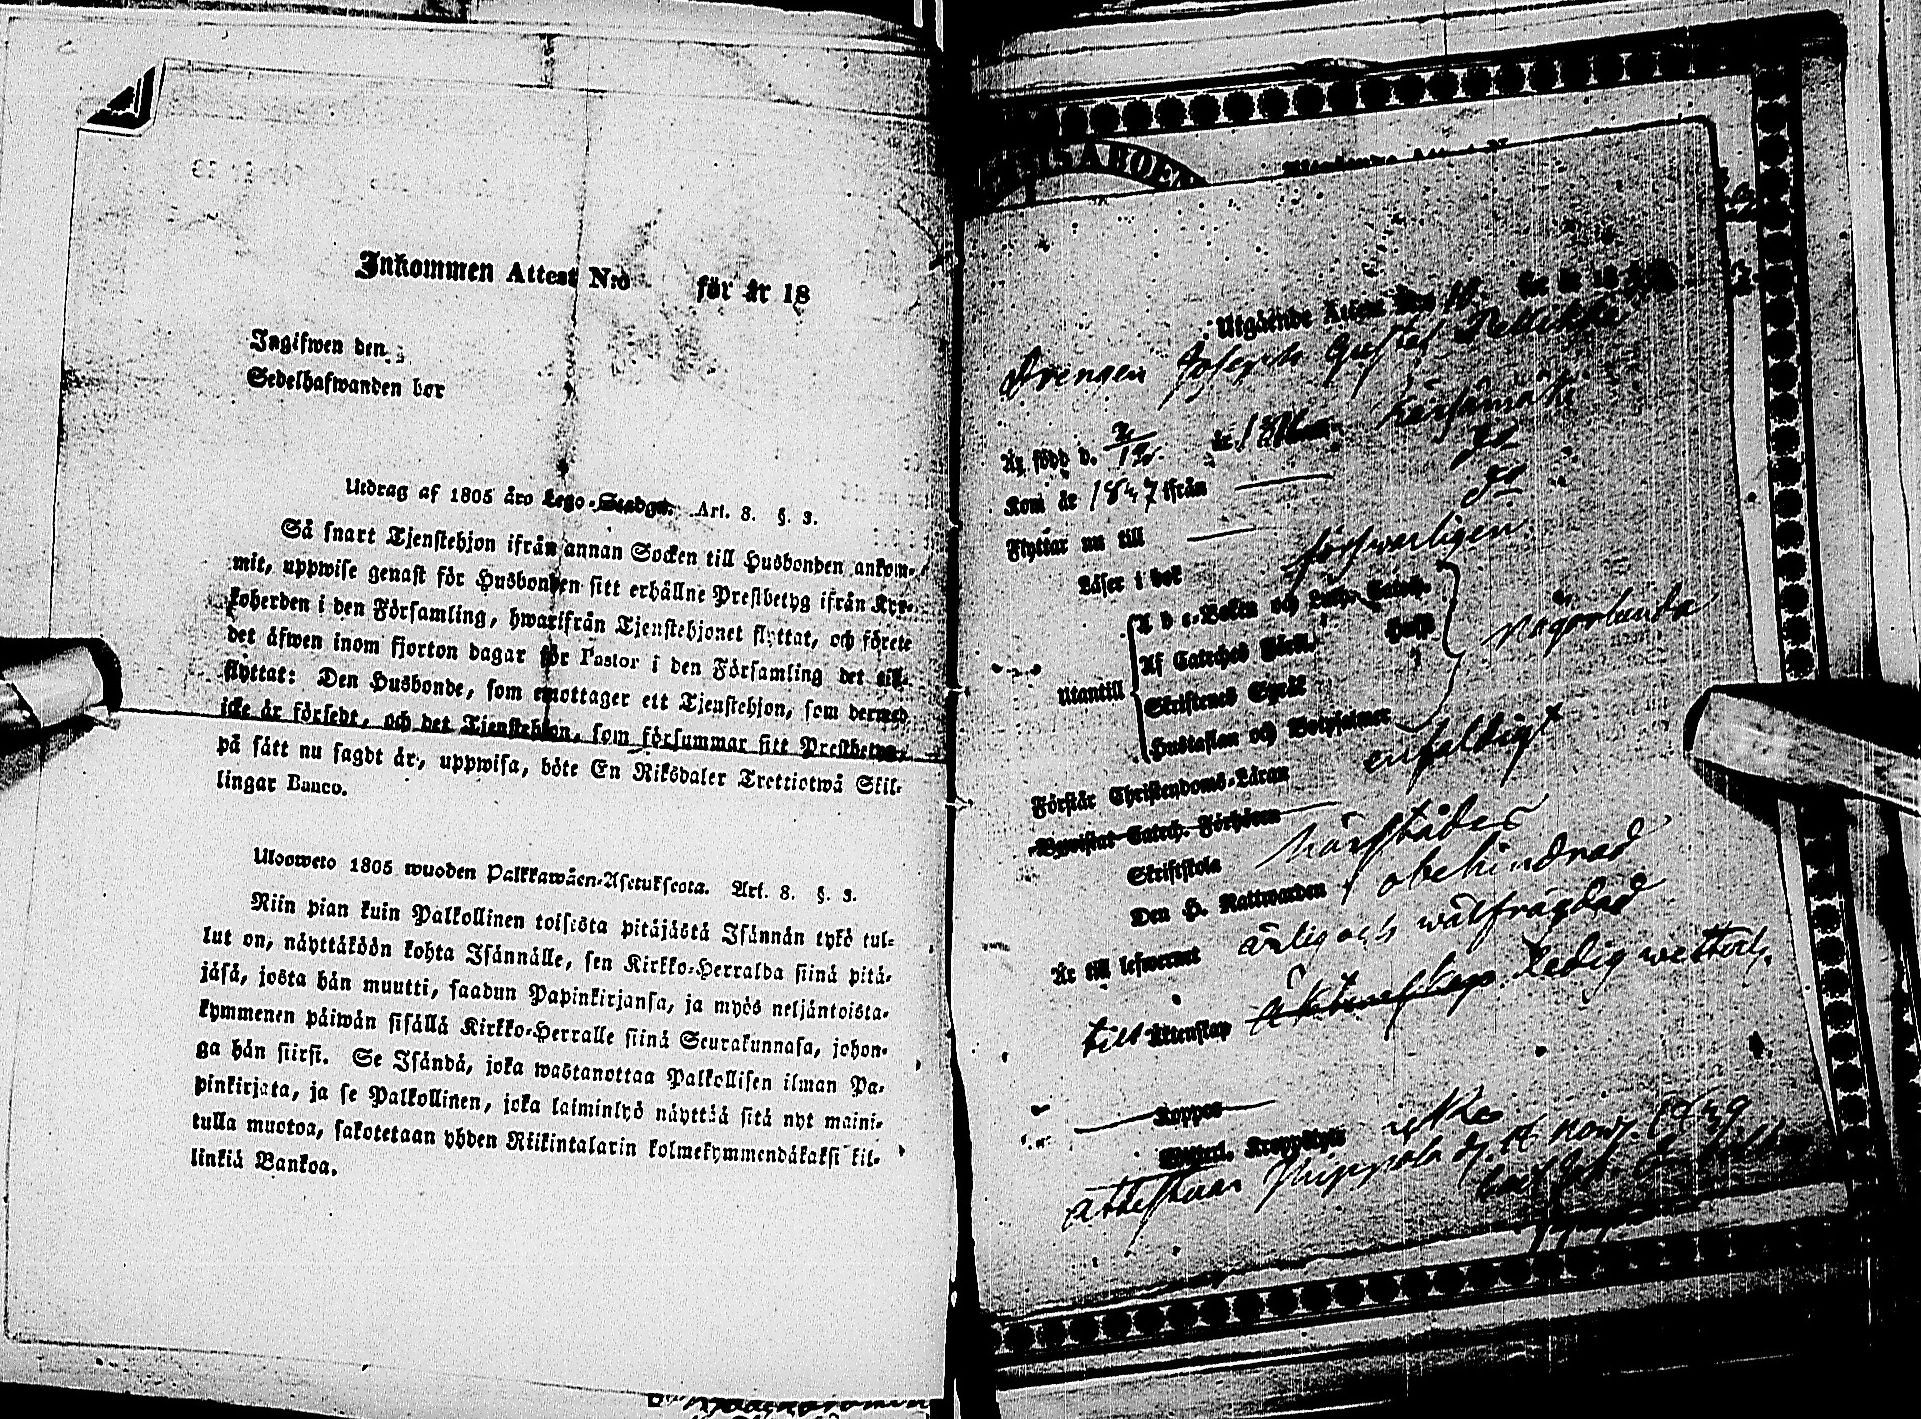 Inkommen Attest N:o för år 18
Ingifwen den
Sedelhafwanden bor
Utdrag af 1805 åro Lego-Stadga. Art. 8. §. 3.
Så snart Tjenstehjon ifrån annan Socken till Husbonden ankom-
mit, uppwise genast för Husbonden sitt erhållne Prestbetyg ifrån Kyr-
koherden i den Församling, hwarifrån Tjenstehjonet flyttat, och förete
det äfwen inom fjorton dagar för Pastor i den Församling det till-
flyttat: Den Husbonde, som emottager ett Tjenstehjon, som dermed
icke är försedt, och det Tjenstehjon, som försummar sitt Prestbetyg,
på sätt nu sagdt är, uppwisa, böte En Riksdaler Trettiotwå Skil-
lingar Banco.
Ulosweto 1805 wuoden Palkkawäen-Asetuksesta. Art. 8. §. 3.
Niin pian kuin Palkollinen toisesta pitäjästä Isännän tykö tul-
lut on, näyttäköön kohta Isännälle, sen Kirkko-Herralda siinä pitä-
jäsä, josta hän muutti, saadun Papinkirjansa, ja myös neljäntoista-
kymmenen päiwän sisällä Kirkko-Herralle siinä Seurakunnasa, johon-
ga hän siirsi. Se Isändä, joka wastanottaa Palkollisen ilman Pa-
pinkirjata, ja se Palkollinen, joka laiminlyö näyttää sitä nyt maini-
tulla muotoa, sakotetaan yhden Riikintalarin kolmekymmendäkaksi kil-
linkiä Bankoa.
IS ABOEN
Utgående Attest N:o 10. för år 18
Drengen Joseph Gustaf
Är född d. år 18 Kärsämäki
Kom år 1847 ifrån do
Flyttar nu till do
Läser i bok förswarligen
A b c-Boken och Luth. Catech.
Af Catechés Förkl. Hela någorlunda
Utantill Skriftenes Språk
Hustaflan och Botpsalmer
Förstår Christendoms-Läran enfaldigt
Bewistat Catech. Förhören
Skriftskola härstädes
Den H. Nattwarden obehindrad
Är till lefwernet ärlig och wälfrägdad
till Äktenskap Ledig weterl.
Koppor
Wetterl. Kroppslyte icke
Attesterar d. 14 Nov.